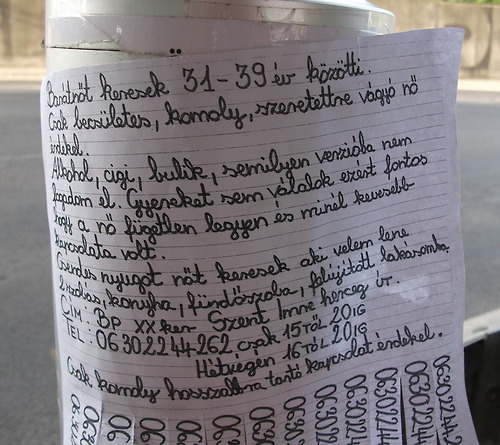 Barátnőt keresek 31-39 év közötti.
Csak becsületes, komoly, szeretettre vágyó nő
érdekel.
Alkohol, cigi, bulik, semilyen verzióba nem
fogadom el. Gyerekat sem válalok ezért fontos
hogy a nő független legyen és minél kevesebb
kapcsolata volt.
Csendes nyugot nőt keresek aki velem lene
1 szobás, konyha, fürdőszoba, felújított lakásomba.
CÍM: BP XX ker Szent Imre herceg út.
TEL: 06302244262 csak 15től 20ig
Hétvégén 16től 20ig
Csak komoly hosszabbra tartó kapcsolat érdekel.